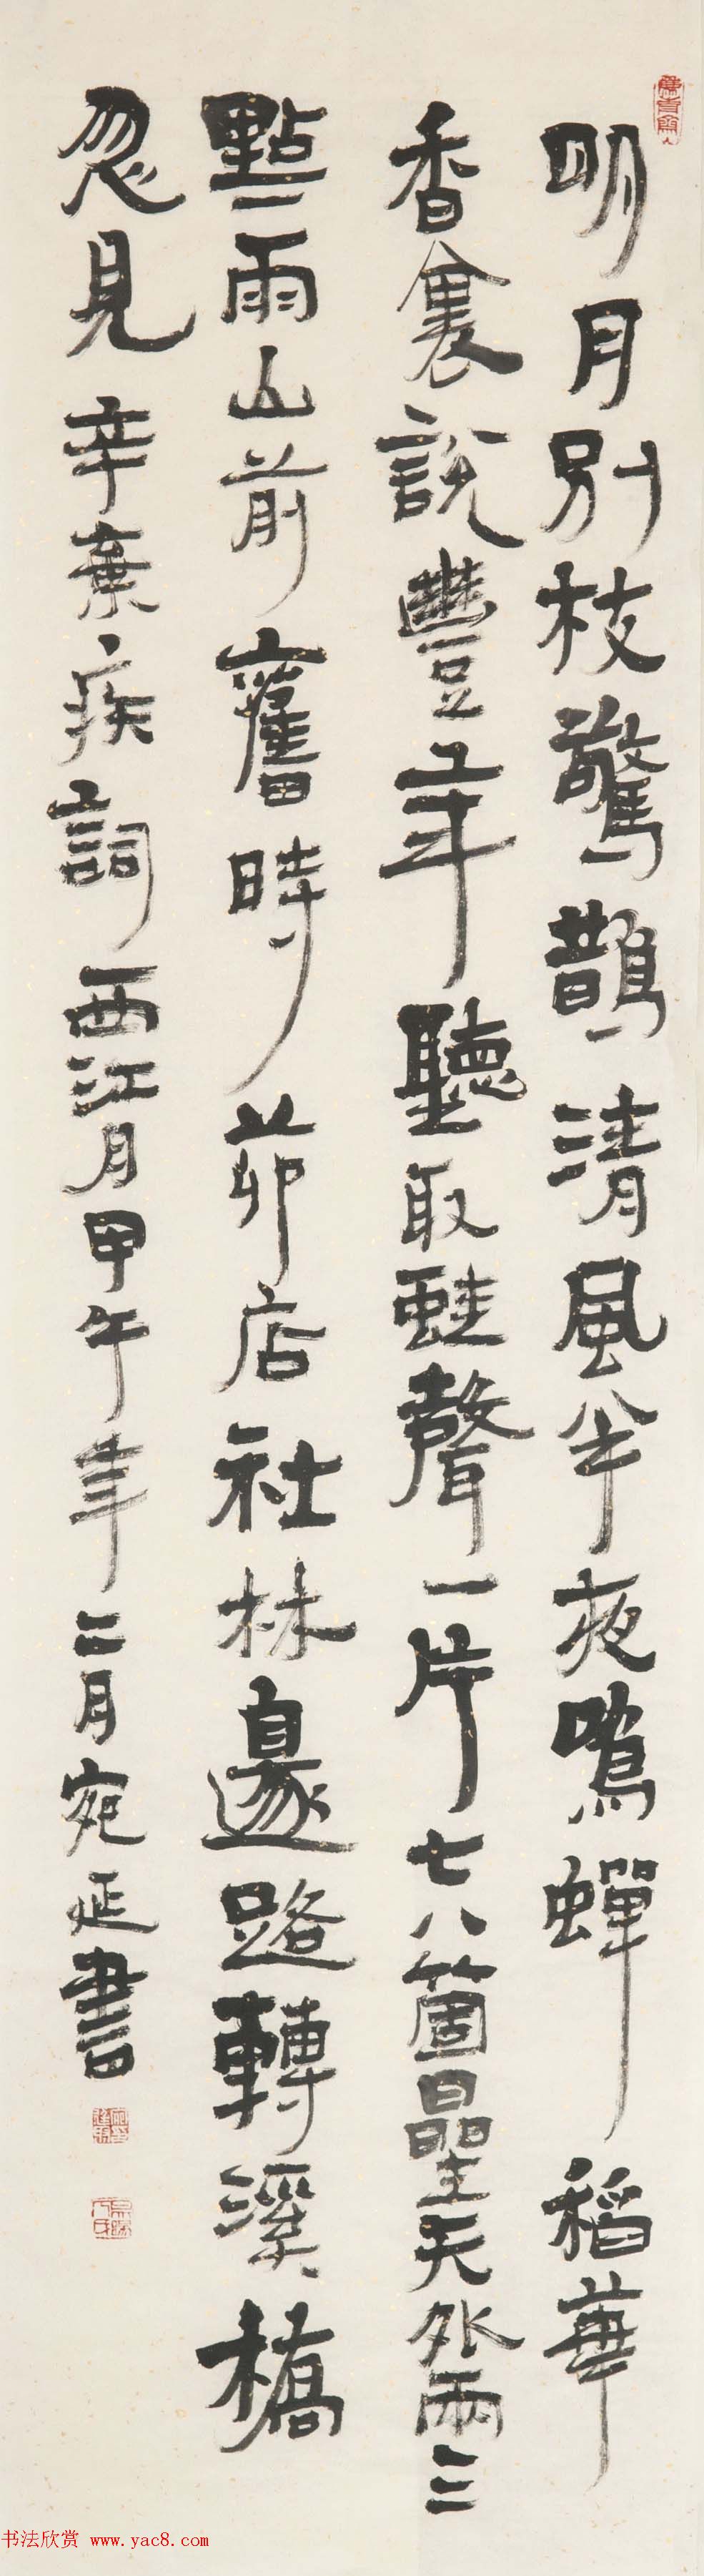 明月別枝驚鵲清風半夜鳴蟬稻華
香裏說豐年聽取蛙聲一片七八箇曐天外兩三
點雨山前舊時茆店社林邊路轉溪橋
忽見辛棄疾詞西江月甲午年二月宛延書
书法欣赏 www.yac8.com